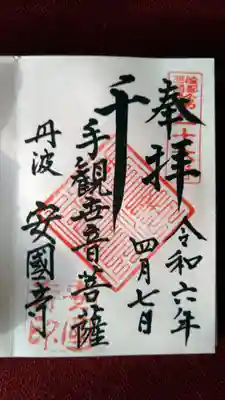 奉拝
令和六年
四月七日
千手観世音菩薩
丹波
安國寺